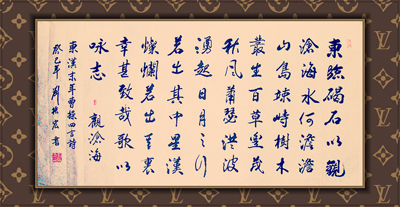 東臨碣石以觀
滄海水何澹澹
山島竦峙樹木
叢生百草豐茂
秋風蕭瑟洪波
湧起日月之行
若出其中星漢
燦爛若出其裏
幸甚致哉歌以
咏志 觀滄海
東漢末年曹操四言詩
癸巳年 書